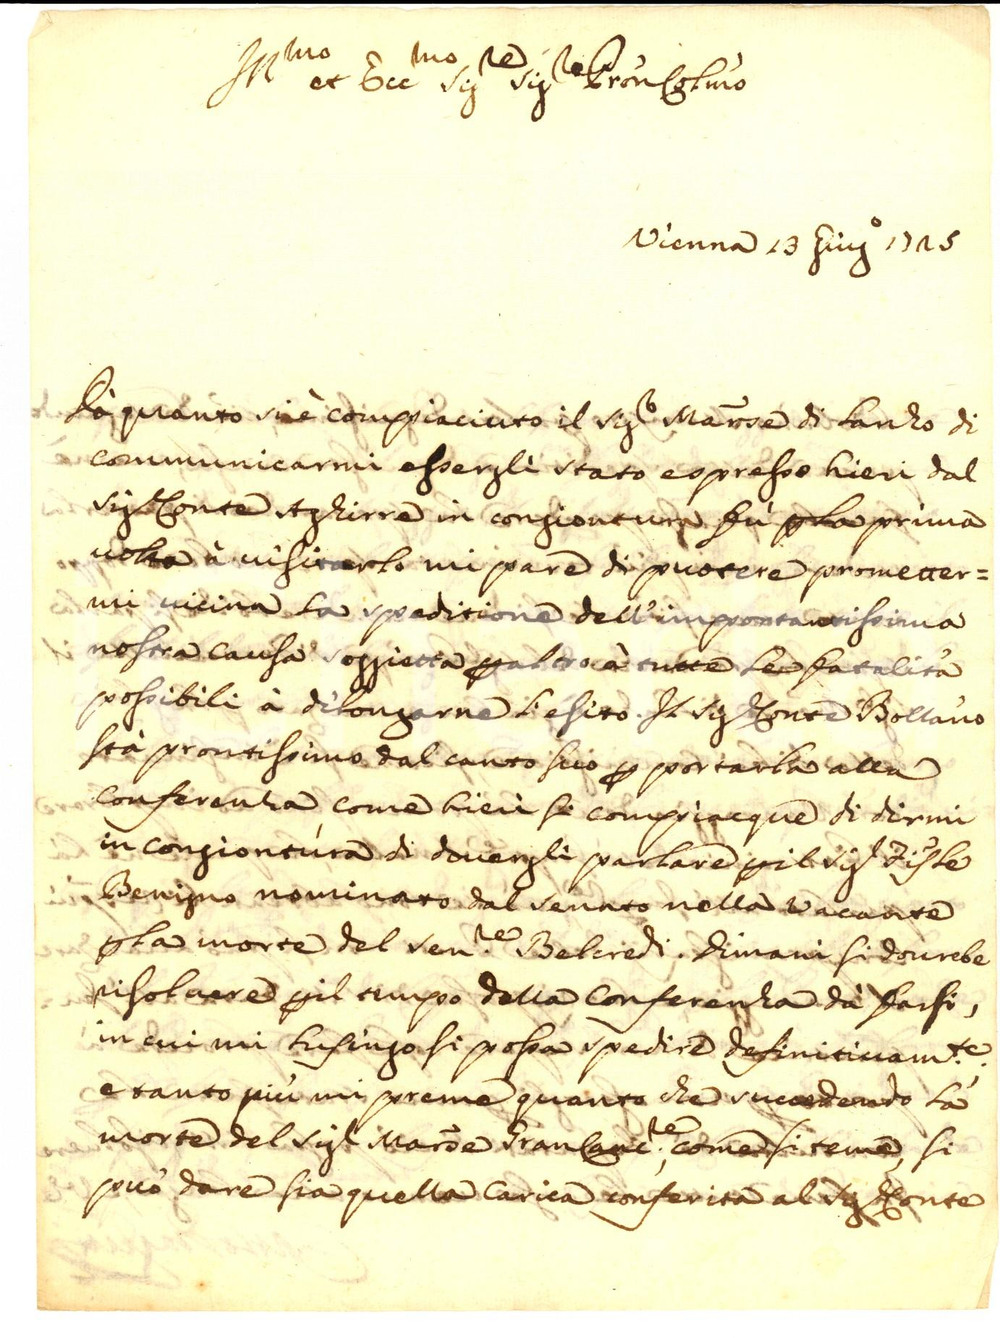 Ill.mo et Ecc.mo Sig.re Sig.re Pron Col.mo
Vienna 13 Giug.o 1725
Da quanto si è compiaciuto il Sig.r March.se di di
communicarmi essergli stato espresso hieri dal
Sig.r Conte Aghirre in congiontura fù p la prima
volta à visitarlo mi pare di puotere prometter=
mi vicina la speditione dell'importantissima
nostra causa soggietta p altro à tutte le fatalità
possibili à dilongarne l'esito. Il Sig.r Conte Bollano
stà prontissimo dal canto suo p portarla alla
Conferenza come hieri si compiacque di dirmi
in congiontura di dovergli parlare p il Sig.r
Benigno nominato dal Senato nella vacante
p la morte del Sen.re Belcredi. Dimani si dovrebe
risolvere p il tempo della Conferenza dà farsi,
in cui mi lusingo si possa spedire definitivam.te
e tanto più mi preme quanto che succedendo la
morte del Sig.r March.se Gran Canc.re, come si teme, si
può dare sia quella Carica conferita al Sig.r Conte